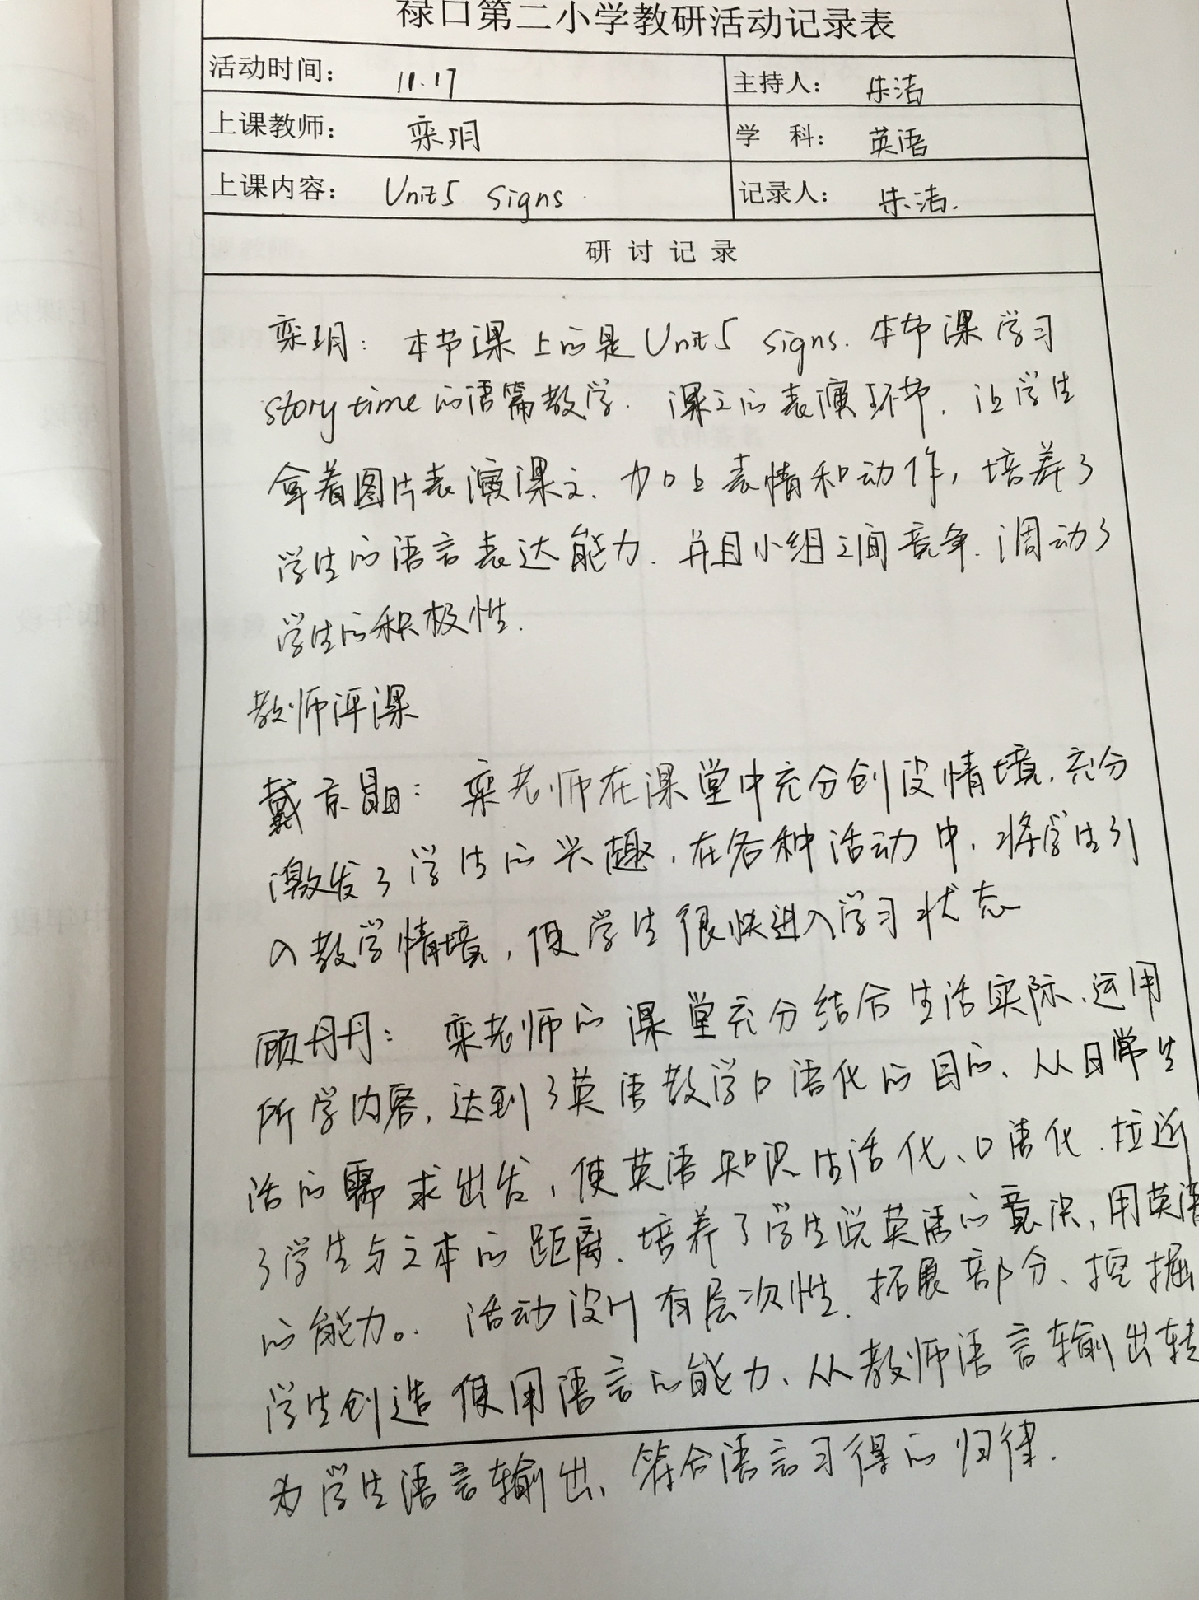 禄口第二小学教研活动记录表
活动时间： 11.17 主持人： 朱洁
上课教师： 栾玥 学 科： 英语
上课内容： Unit5 signs 记录人： 朱洁.
研 讨 记 录
栾玥： 本节课上的是Unit5 signs. 本节课学习
story time的语篇教学. 课文的表演环节，让学生
拿着图片表演课文、加上表情和动作，培养了
学生的语言表达能力. 并且小组之间竞争、调动了
学生的积极性.
教师评课
戴京晶： 栾老师在课堂中充分创设情境，充分
激发了学生的兴趣，在各种活动中，将学生引
入教学情境，使学生很快进入学习状态
顾丹丹： 栾老师的课堂充分结合生活实际、运用
所学内容，达到了英语教学口语化的目的、从日常生
活的需求出发，使英语知识生活化、口语化. 拉近
了学生与文本的距离、培养了学生说英语的意识，用英语
的能力。. 活动设计有层次性. 拓展部分、挖掘
学生创造使用语言的能力、从教师语言输出转
为学生语言输出、符合语言习得的归律.